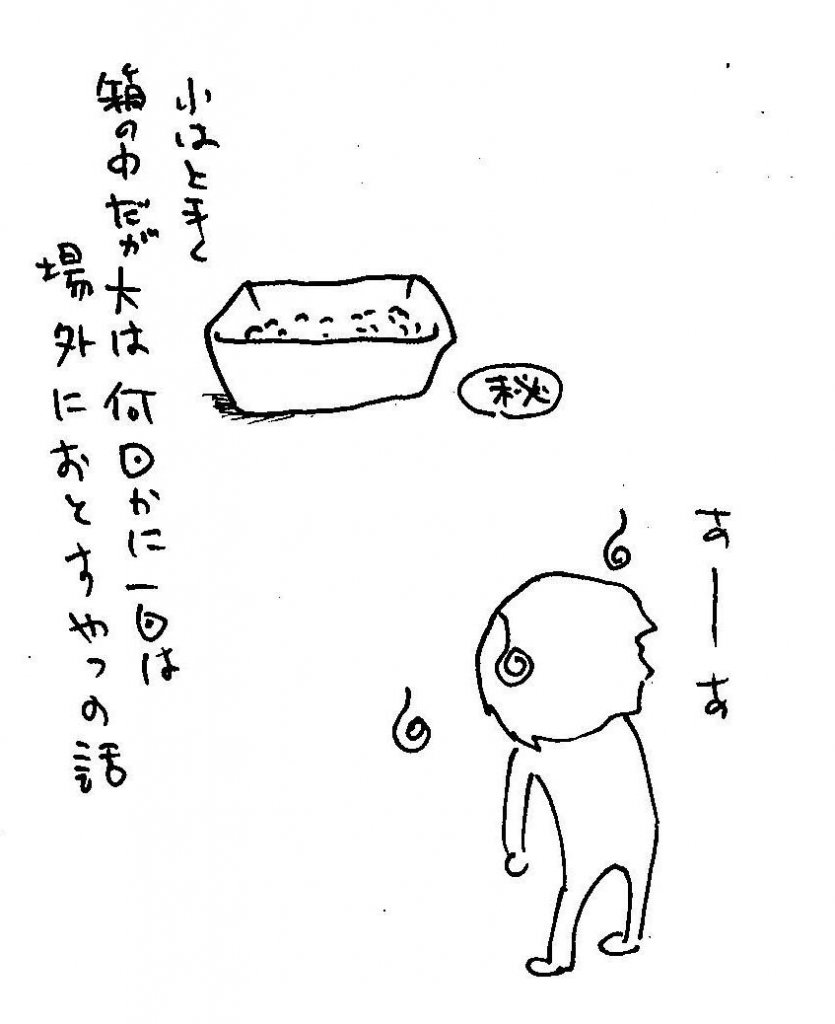 小は上手く
箱の中だが大は何回かに一回は
場外におとすやつの話
秘
あーあ